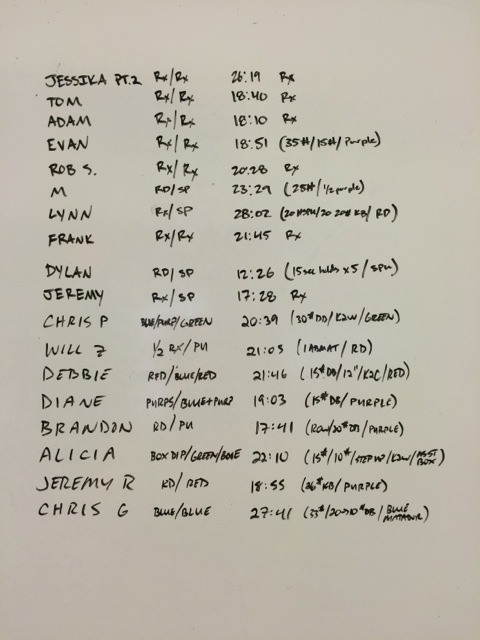 JESSIKA PT.2 Rx/Rx 26:19 Rx
TOM Rx/Rx 18:40 Rx
ADAM Rx/Rx 18:10 Rx
EVAN Rx/Rx 18:51 (35#/15#/Purple)
ROB S. Rx/Rx 20:28 Rx
M RD/SP 23:29 (25#/½ purple)
LYNN Rx/SP 28:02 (20 20# KB/RD)
FRANK Rx/Rx 21:45 Rx
DYLAN RD/SP 12:26 (15sec holds x5/SPU)
JEREMY Rx/SP 17:28 Rx
CHRIS P BLUE/PURP/GREEN 20:39 (30# DB/K2W/GREEN)
WILL Z ½ RX/PU 21:03 (1 ABMAT/RD)
DEBBIE RED/BLUE/RED 21:46 (15# DB/12"/K2C/RED)
DIANE PURPS/BLUE+PURP 19:03 (15# DB/PURPLE)
BRANDON RD/PU 17:41 (ROW/20# DB/PURPLE)
ALICIA BOX DIP/GREEN/BLUE 22:10 (15#/10#/STEP UP/K2W/ASST BOX)
JEREMY R RD/RED 18:55 (26# KB/PURPLE)
CHRIS G BLUE/BLUE 27:41 (35#/20->10# DB/BLUE MATADOR)